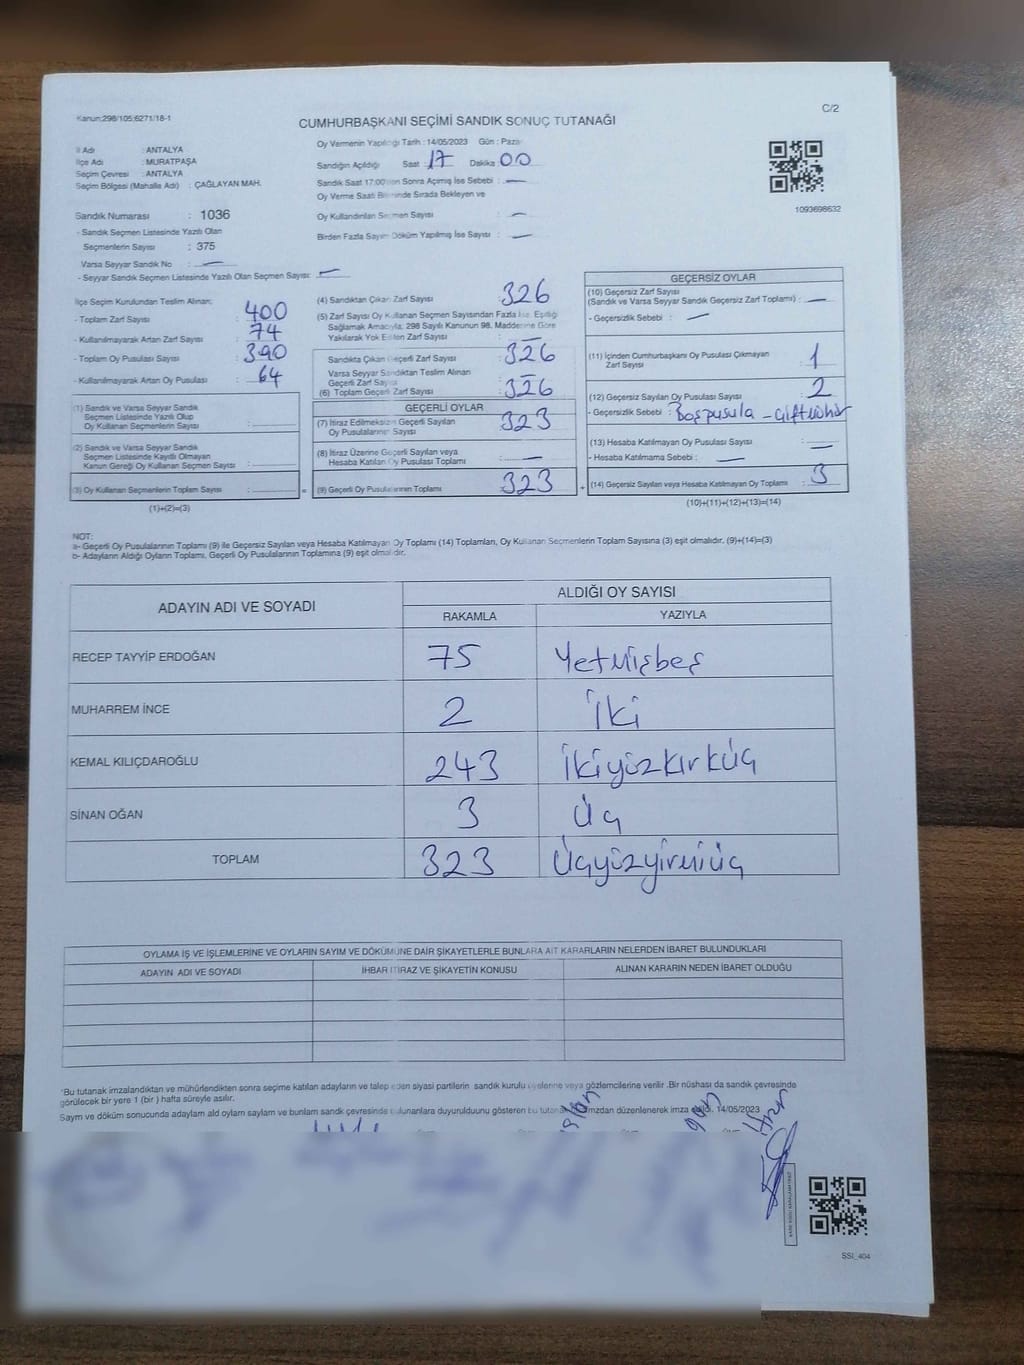 Kanun:298/105;6271/18-1
C/2
CUMHURBAŞKANI SEÇİMİ SANDIK SONUÇ TUTANAĞI
İl Adı : ANTALYA
İlçe Adı : MURATPAŞA
Seçim Çevresi : ANTALYA
Seçim Bölgesi (Mahalle Adı) : ÇAĞLAYAN MAH.
Sandık Numarası : 1036
- Sandık Seçmen Listesinde Yazılı Olan
Seçmenlerin Sayısı : 375
Varsa Seyyar Sandık No : —
- Seyyar Sandık Seçmen Listesinde Yazılı Olan Seçmen Sayısı: —
Oy Vermenin Yapıldığı Tarih : 14/05/2023 Gün : Pazar
Sandığın Açıldığı Saat : 17 Dakika : 00
Sandık Saat 17:00'den Sonra Açılmış İse Sebebi : —
Oy Verme Saati Bitiminde Sırada Bekleyen ve
Oy Kullandırılan Seçmen Sayısı : —
Birden Fazla Sayım Döküm Yapılmış İse Sayısı : —
1093698632
İlçe Seçim Kurulundan Teslim Alınan;
- Toplam Zarf Sayısı : 400
- Kullanılmayarak Artan Zarf Sayısı : 74
- Toplam Oy Pusulası Sayısı : 390
- Kullanılmayarak Artan Oy Pusulası : 64
(1) Sandık ve Varsa Seyyar Sandık
Seçmen Listesinde Yazılı Olup
Oy Kullanan Seçmenlerin Sayısı :
(2) Sandık ve Varsa Seyyar Sandık
Seçmen Listesinde Kayıtlı Olmayan
Kanun Gereği Oy Kullanan Seçmen Sayısı :
(3) Oy Kullanan Seçmenlerin Toplam Sayısı : =
(1)+(2)=(3)
(4) Sandıktan Çıkan Zarf Sayısı : 326
(5) Zarf Sayısı Oy Kullanan Seçmen Sayısından Fazla İse, Eşitliği
Sağlamak Amacıyla; 298 Sayılı Kanunun 98. Maddesine Göre
Yakılarak Yok Edilen Zarf Sayısı : —
Sandıkta Çıkan Geçerli Zarf Sayısı : 326
Varsa Seyyar Sandıktan Teslim Alınan
Geçerli Zarf Sayısı : —
(6) Toplam Geçerli Zarf Sayısı : 326
GEÇERLİ OYLAR
(7) İtiraz Edilmeksizin Geçerli Sayılan
Oy Pusulalarının Sayısı : 323
(8) İtiraz Üzerine Geçerli Sayılan veya
Hesaba Katılan Oy Pusulası Toplamı : —
(9) Geçerli Oy Pusulalarının Toplamı : 323 +
GEÇERSİZ OYLAR
(10) Geçersiz Zarf Sayısı
(Sandık ve Varsa Seyyar Sandık Geçersiz Zarf Toplamı) : —
- Geçersizlik Sebebi : —
(11) İçinden Cumhurbaşkanı Oy Pusulası Çıkmayan
Zarf Sayısı : 1
(12) Geçersiz Sayılan Oy Pusulası Sayısı : 2
- Geçersizlik Sebebi : Boş pusula - Çift mühür
(13) Hesaba Katılmayan Oy Pusulası Sayısı : —
- Hesaba Katılmama Sebebi : —
(14) Geçersiz Sayılan veya Hesaba Katılmayan Oy Toplamı : 3
(10)+(11)+(12)+(13)=(14)
NOT:
a- Geçerli Oy Pusulalarının Toplamı (9) ile Geçersiz Sayılan veya Hesaba Katılmayan Oy Toplamı (14) Toplamları, Oy Kullanan Seçmenlerin Toplam Sayısına (3) eşit olmalıdır. (9)+(14)=(3)
b- Adayların Aldığı Oyların Toplamı, Geçerli Oy Pusulalarının Toplamına (9) eşit olmalıdır.
ADAYIN ADI VE SOYADI
ALDIĞI OY SAYISI
RAKAMLA YAZIYLA
RECEP TAYYİP ERDOĞAN 75 Yetmişbeş
MUHARREM İNCE 2 İki
KEMAL KILIÇDAROĞLU 243 İkiyüzkırküç
SİNAN OĞAN 3 Üç
TOPLAM 323 Üçyüzyirmiüç
OYLAMA İŞ VE İŞLEMLERİNE VE OYLARIN SAYIM VE DÖKÜMÜNE DAİR ŞİKAYETLERLE BUNLARA AİT KARARLARIN NELERDEN İBARET BULUNDUKLARI
ADAYIN ADI VE SOYADI İHBAR İTİRAZ VE ŞİKAYETİN KONUSU ALINAN KARARIN NEDEN İBARET OLDUĞU
*Bu tutanak imzalandıktan ve mühürlendikten sonra seçime katılan adayların ve talep eden siyasi partilerin sandık kurulu üyelerine veya gözlemcilerine verilir .Bir nüshası da sandık çevresinde
görülecek bir yere 1 (bir ) hafta süreyle asılır.
Sayım ve döküm sonucunda adayların aldı oyların sayıların ve bunların sandk çevresinde bulunanlara duyurulduunu gösteren bu tutanak tarafımzdan düzenlenerek imza edildi. 14/05/2023
SSI_404